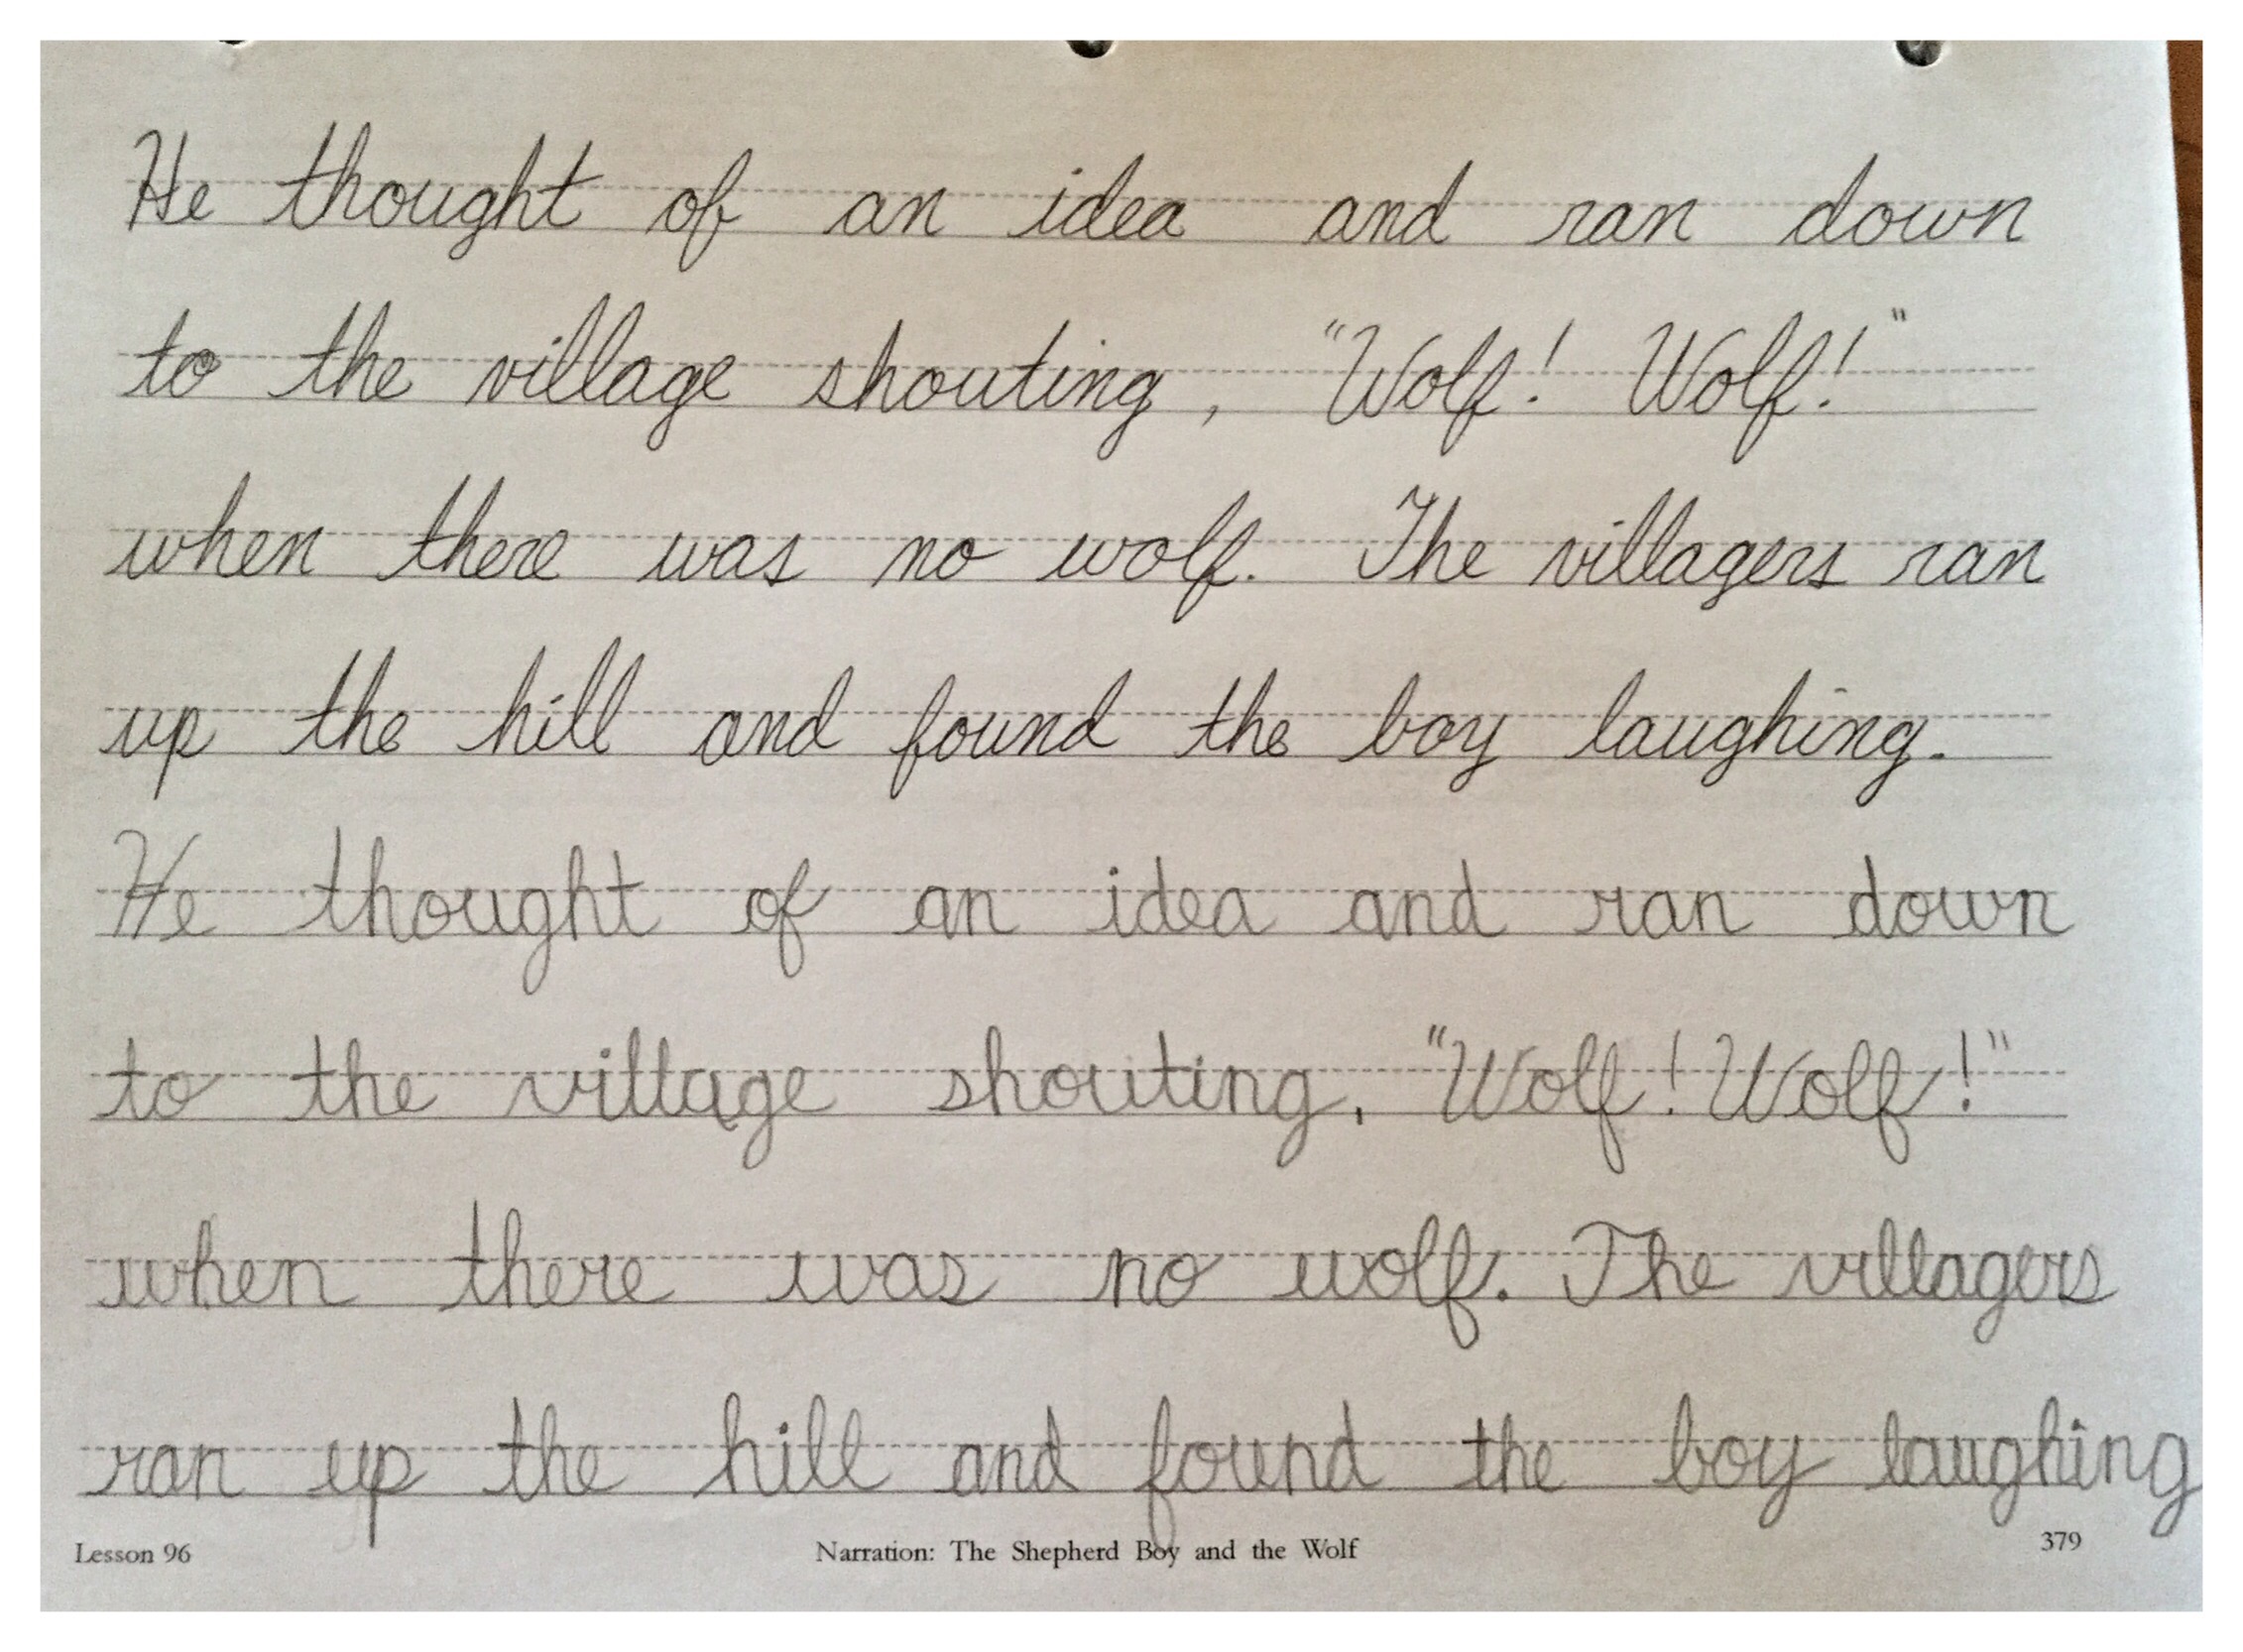 He thought of an idea and ran down
to the village shouting, "Wolf! Wolf!"
when there was no wolf. The villagers ran
up the hill and found the boy laughing.
He thought of an idea and ran down
to the village shouting, "Wolf! Wolf!"
when there was no wolf. The villagers
ran up the hill and found the boy laughing
Lesson 96 Narration: The Shepherd Boy and the Wolf 379